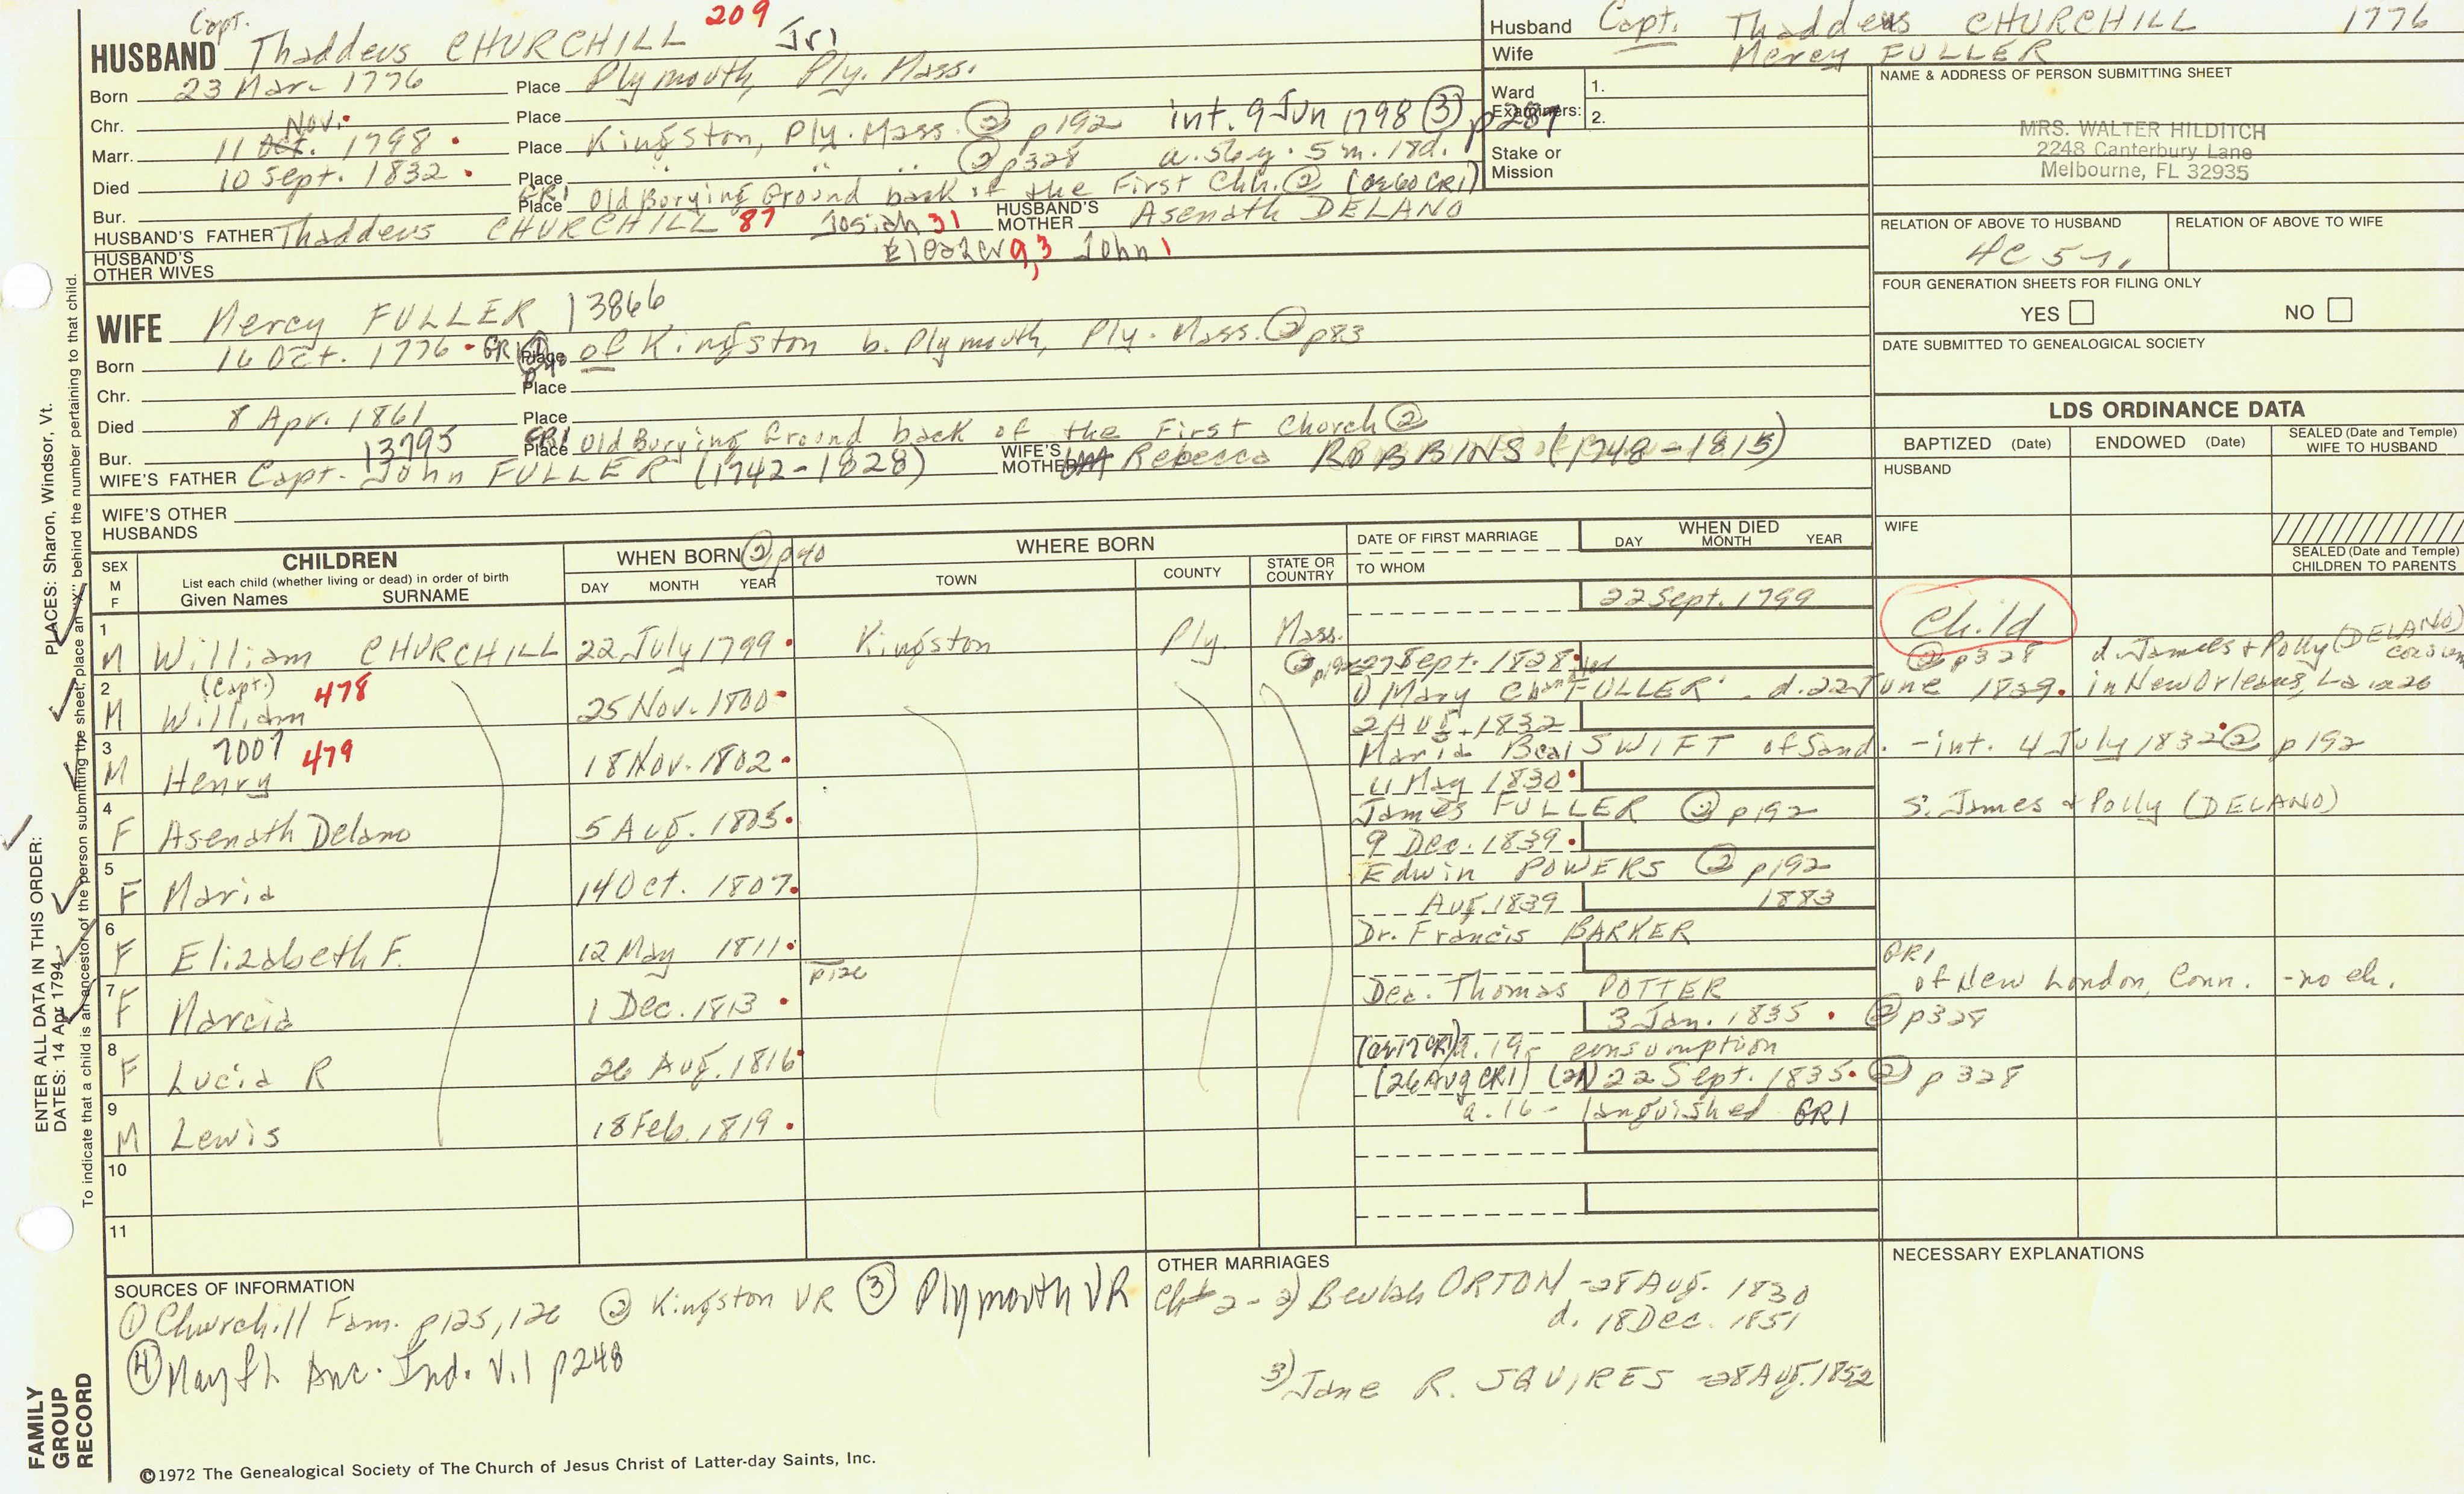 Capt.
HUSBAND Thaddeus CHURCHILL 209 Jr.
Born 23 Mar. 1776 Place Plymouth, Ply. Mass.
Chr. Place
Marr. 11 Oct. Nov. 1798 Place Kingston, Ply. Mass. ② p192 int. 9 Jun 1798 ③ p287
Died 10 Sept. 1832 Place " " ② p328 a. 56 y. 5 m. 18d.
Bur. Place GR1 Old Burying Ground back of the First Chh. ② (ae 60 CR1)
HUSBAND'S FATHER Thaddeus CHURCHILL 87 Josiah 31 HUSBAND'S MOTHER Asenath DELANO
Eleazer 9,3 John 1
HUSBAND'S OTHER WIVES
WIFE Mercy FULLER 13866
Born 16 Oct. 1776 GR1 Place of Kingston b. Plymouth, Ply. Mass. ② p83
Chr. Place
Died 8 Apr. 1861 Place
Bur. Place GR1 Old Burying Ground back of the First Church ②
13795
WIFE'S FATHER Capt. John FULLER (1742-1828) WIFE'S MOTHER Rebecca ROBBINS (1748-1815)
WIFE'S OTHER HUSBANDS
Husband Capt. Thaddeus CHURCHILL 1776
Wife Mercy FULLER
Ward Examiners: 1.
2.
Stake or Mission
NAME & ADDRESS OF PERSON SUBMITTING SHEET
MRS. WALTER HILDITCH
2248 Canterbury Lane
Melbourne, FL 32935
RELATION OF ABOVE TO HUSBAND RELATION OF ABOVE TO WIFE
4C 5r.
FOUR GENERATION SHEETS FOR FILING ONLY
YES NO
DATE SUBMITTED TO GENEALOGICAL SOCIETY
LDS ORDINANCE DATA
BAPTIZED (Date) ENDOWED (Date) SEALED (Date and Temple) WIFE TO HUSBAND
HUSBAND
WIFE
SEALED (Date and Temple) CHILDREN TO PARENTS
SEX M F
CHILDREN
List each child (whether living or dead) in order of birth
Given Names SURNAME
WHEN BORN ② p40
DAY MONTH YEAR
WHERE BORN
TOWN COUNTY STATE OR COUNTRY
DATE OF FIRST MARRIAGE
TO WHOM
WHEN DIED
DAY MONTH YEAR
1 M William CHURCHILL 22 July 1799 Kingston Ply. Mass. 22 Sept. 1799 Child ② p328
2 M (Capt.) William 478 25 Nov. 1800 ② p192 27 Sept. 1828 1) Mary FULLER d. 22 June 1829 in New Orleans, La
d. James & Polly (DELANO)
3 M 7007 Henry 479 18 Nov. 1802 2 Aug. 1832 Maria Beal SWIFT of Sand. - int. 4 July 1832 ② p192
4 F Asenath Delano 5 Aug. 1805 11 May 1830 James FULLER ② p192 s. James & Polly (DELANO)
5 F Maria 14 Oct. 1807 9 Dec. 1839 Edwin POWERS ② p192
6 F Elizabeth F. 12 May 1811 Aug. 1839 1883 Dr. Francis BARKER
7 F Marcia 1 Dec. 1813 p126 Dea. Thomas POTTER GR1 of New London, Conn. - no ch.
8 F Lucia R 26 Aug. 1816 3 Jan. 1835 ② p328 (ae 17 CR1) a. 19 - consumption
9 M Lewis 18 Feb. 1819 (26 Aug CR1) 22 Sept. 1835 ② p328 a. 16 - languished GR1
10
11
SOURCES OF INFORMATION
① Churchill Fam. p125, 126 ② Kingston VR ③ Plymouth VR
④ Mayfl. Anc. Ind. V.1 p248
OTHER MARRIAGES
Ch# 2 - 2) Beulah ORTON - 28 Aug. 1830
d. 18 Dec. 1851
3) Jane R. SQUIRES - 28 Aug. 1852
NECESSARY EXPLANATIONS
©1972 The Genealogical Society of The Church of Jesus Christ of Latter-day Saints, Inc.
FAMILY GROUP RECORD
ENTER ALL DATA IN THIS ORDER:
DATES: 14 Apr 1794
PLACES: Sharon, Windsor, Vt.
To indicate that a child is an ancestor of the person submitting the sheet, place an "X" behind the number pertaining to that child.